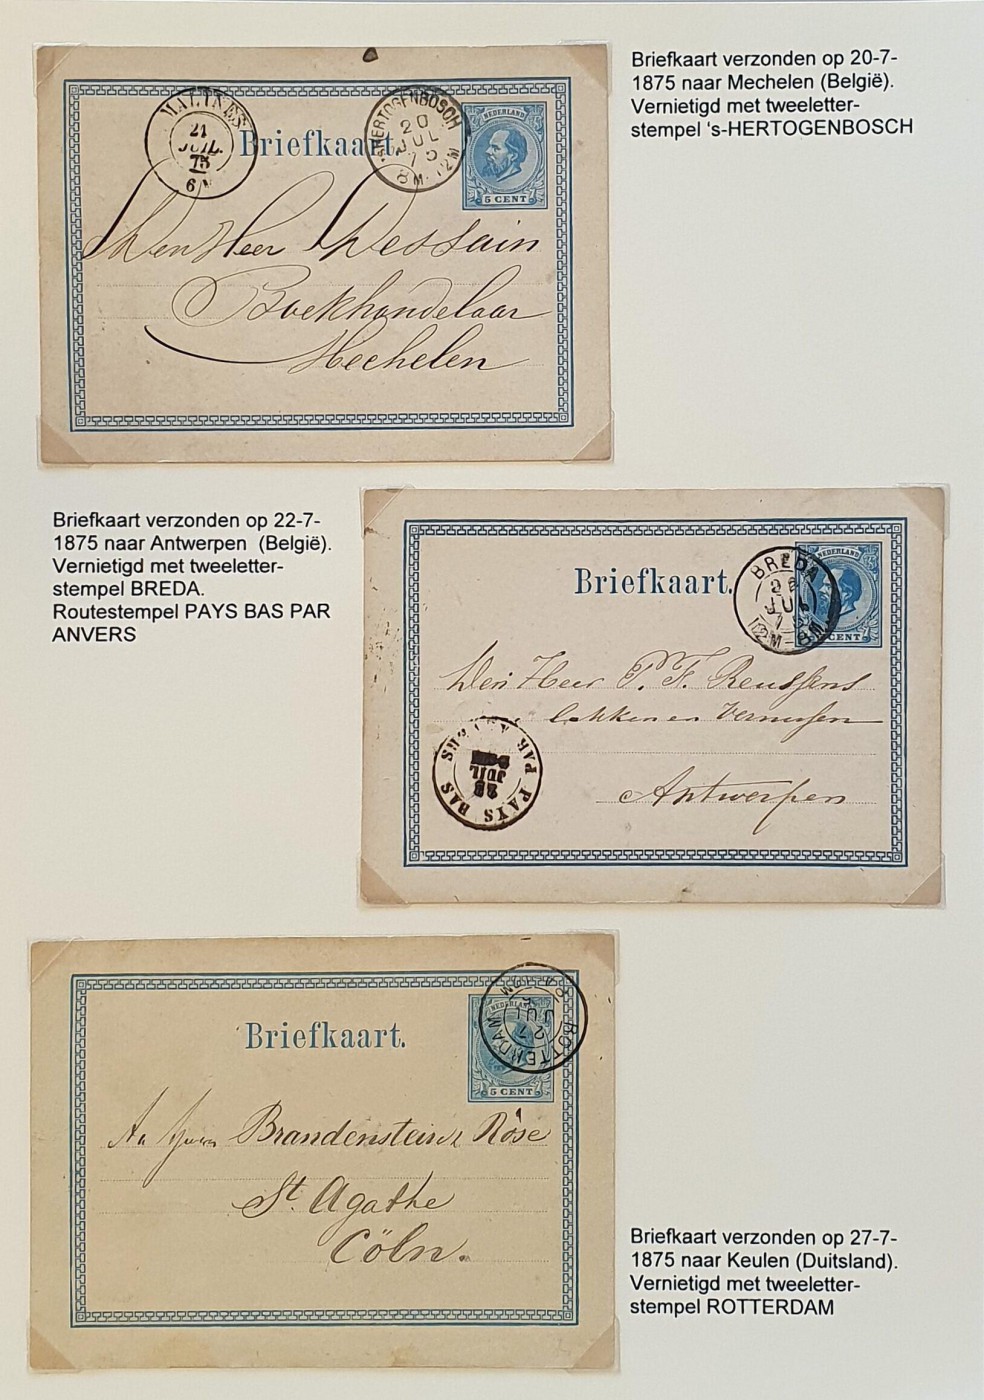 Briefkaart verzonden op 20-7-
1875 naar Mechelen (België).
Vernietigd met tweeletter-
stempel 's-HERTOGENBOSCH
MALINES
21
JUIL.
75
6
Briefkaart.
'S HERTOGENBOSCH
20
JUL
75
8M-12M
NEDERLAND
5 CENT
Den Heer Wessain
Boekhandelaar
Mechelen
Briefkaart verzonden op 22-7-
1875 naar Antwerpen (België).
Vernietigd met tweeletter-
stempel BREDA.
Routestempel PAYS BAS PAR
ANVERS
Briefkaart.
BREDA
JUL
12M-8M
NEDERLAND
CENT
Den Heer P. F. Reussens
Antwerpen
PAYS BAS PAR ANVERS
JUIL
Briefkaart.
ROTTERDAM
27
JUL
NEDERLAND
5 CENT
An Brandenstein & Röse
St. Agathe
Cöln.
Briefkaart verzonden op 27-7-
1875 naar Keulen (Duitsland).
Vernietigd met tweeletter-
stempel ROTTERDAM